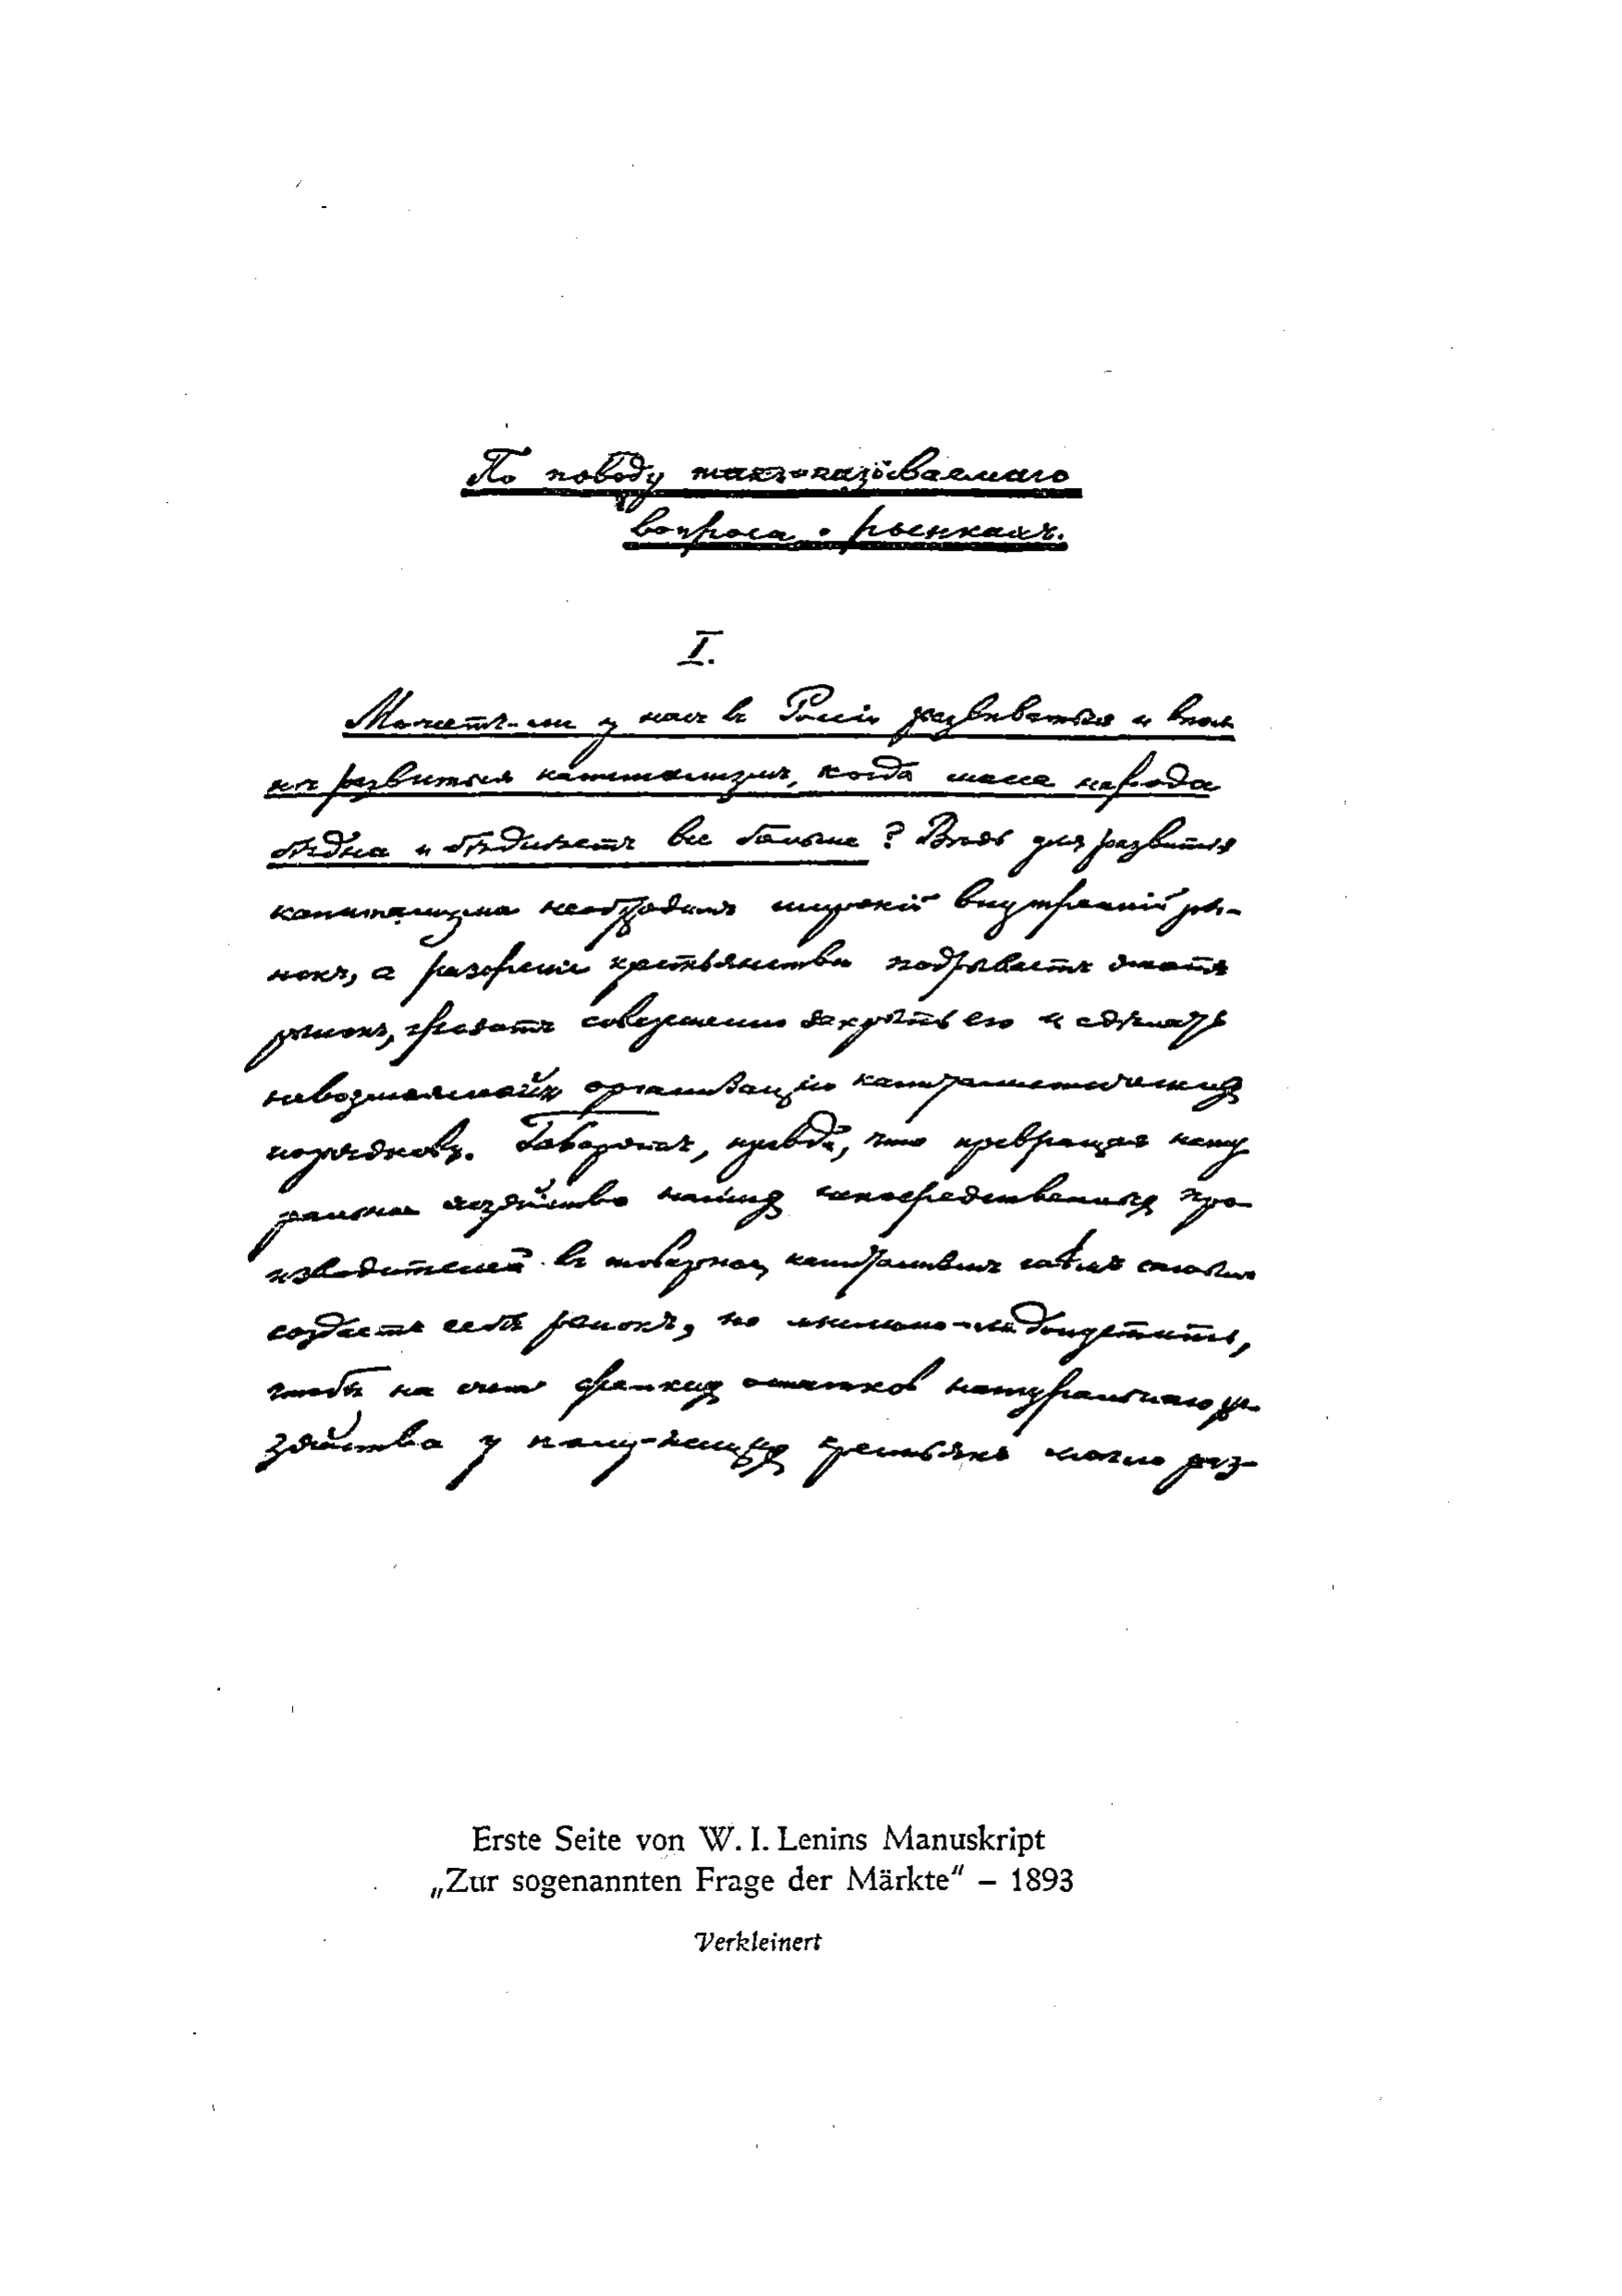 По поводу такъ-называемаго
вопроса о рынкахъ.
I.
Можетъ-ли у насъ въ Россіи развиваться и впол
нѣ развиться капитализмъ, когда масса народа
бѣдна и бѣднѣетъ все больше? Вѣдь для развитія
капитализма необходимъ широкій внутренній ры-
нокъ, а разореніе крестьянства подрываетъ этотъ
рынокъ, грозитъ совершенно закрыть его и сдѣлать
невозможной организацію капиталистическихъ
порядковъ. Говорятъ, правда, что превращая нату
ральное хозяйство нашихъ непосредственныхъ про
изводителей въ товарное, капитализмъ самъ
создаетъ себѣ рынокъ, но мыслимо-ли допустить,
чтобы на счетъ остатковъ натуральнаго хо
зяйства у полу-нищихъ крестьянъ могло раз-
Erste Seite von W. I. Lenins Manuskript
„Zur sogenannten Frage der Märkte“ – 1893
Verkleinert